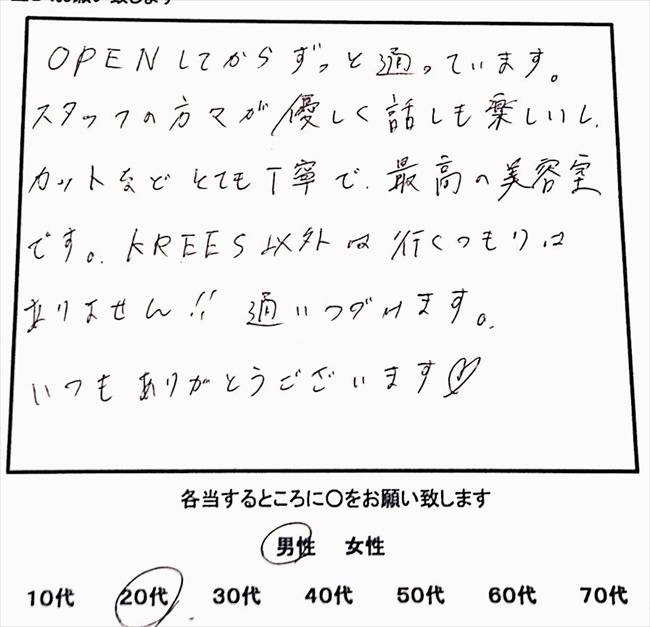 お願い致します
OPENしてからずっと通っています。
スタッフの方々が優しく話しも楽しいし、
カットなどとても丁寧で、最高の美容室
です。KREES以外は行くつもりは
ありません!! 通いつづけます。
いつもありがとうございます♡
各当するところに〇をお願い致します
男性 女性
10代 20代 30代 40代 50代 60代 70代